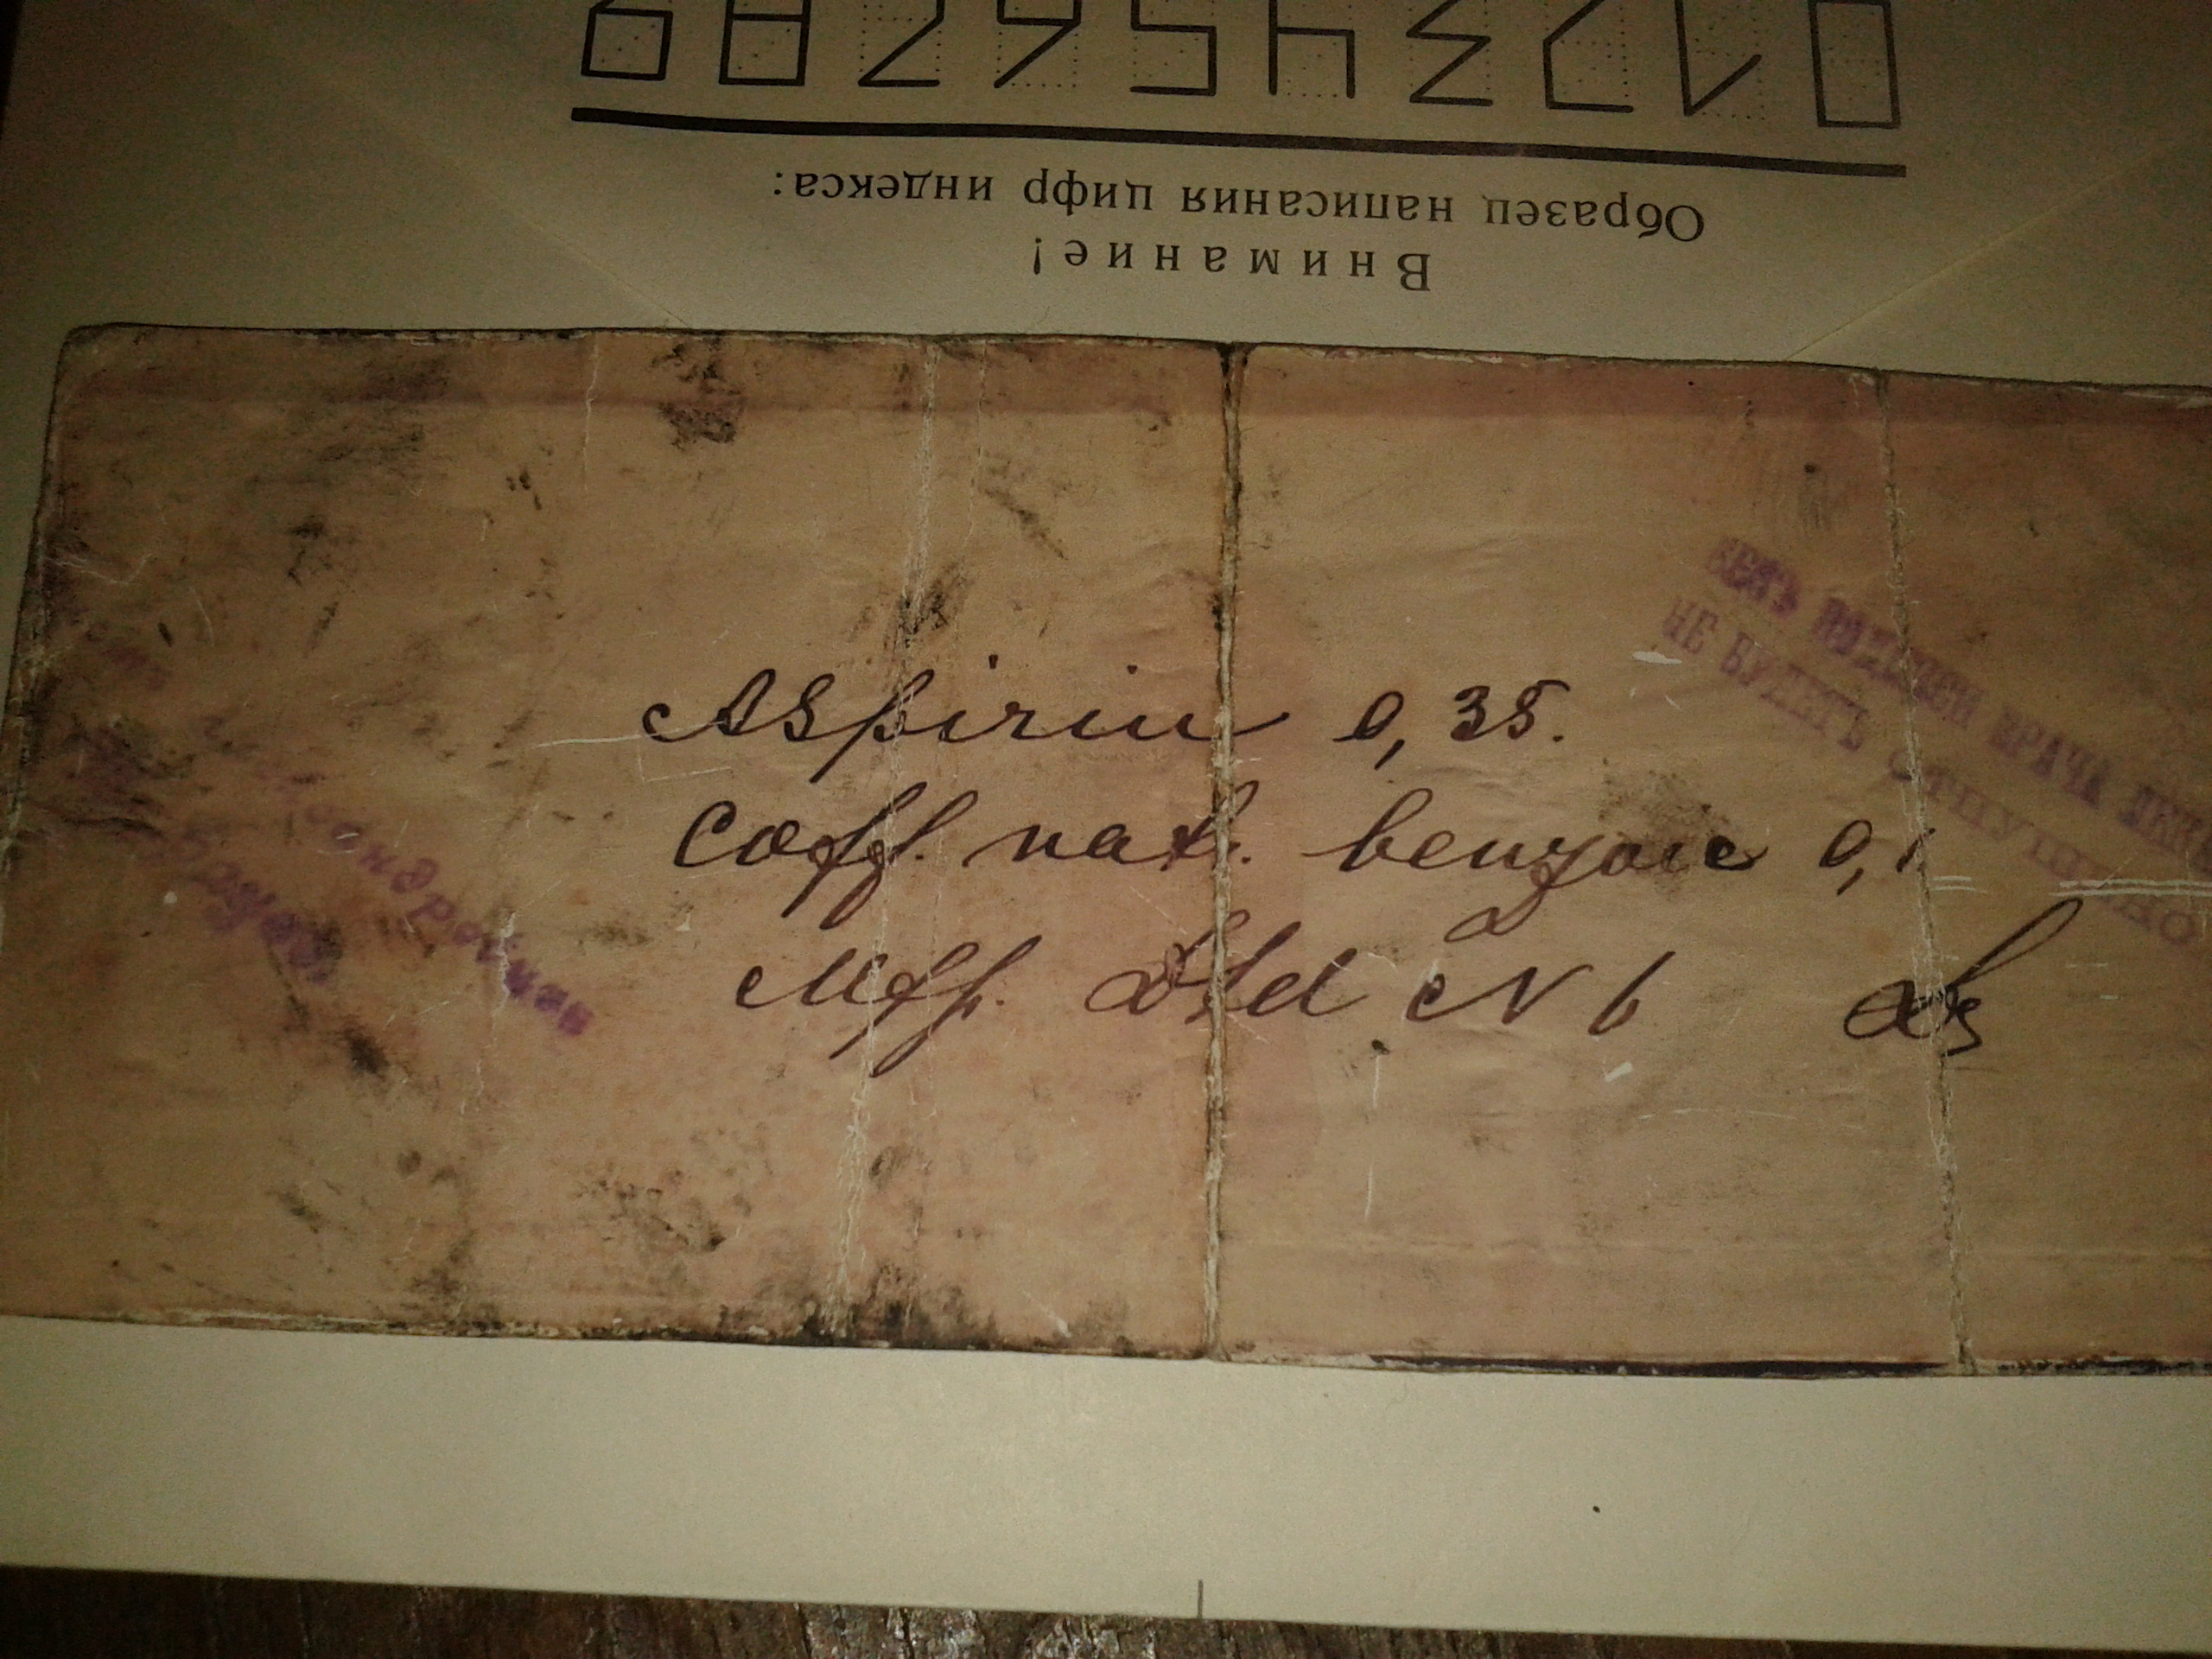 Внимание!
Образец написания цифр индекса:
0123456789
Aspirin 0,35.
Coff. natr. benzoic 0,1
Mff. Dtd N 6 DS
БЕЗЪ ПОДПИСИ ВРАЧА
НЕ БУДЕТЪ ОТПУЩЕНО